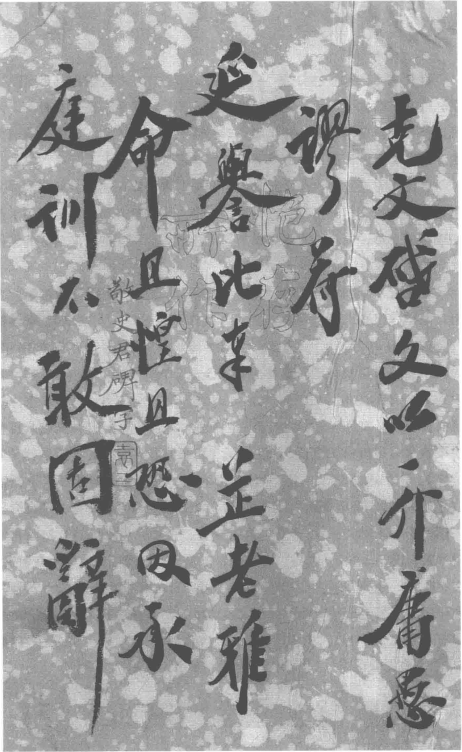 克文啓文以一介庸愚
謬荷
延譽比奉芷老雅
命且惶且恐因承
庭訓不敢固辭
敬史君碑字